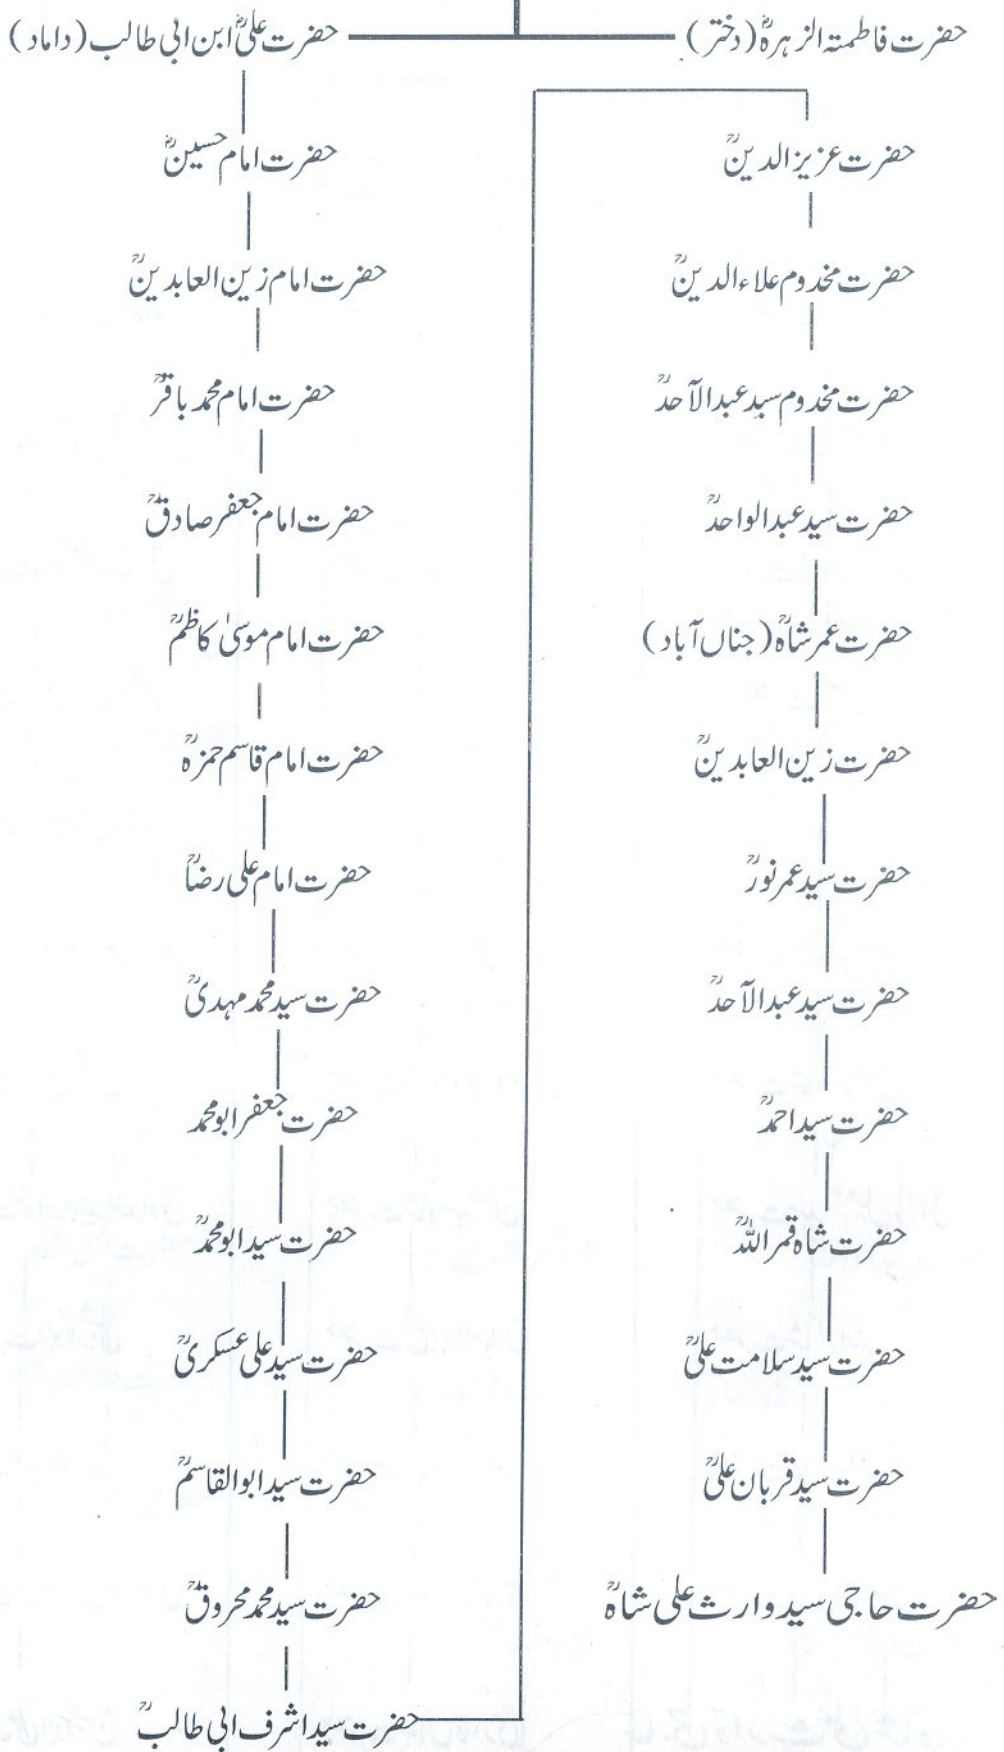 حضرت فاطمتہ الزہرہؓ (دختر)
حضرت علیؓ ابن ابی طالب (داماد)
حضرت امام حسینؓ
حضرت امام زین العابدینؒ
حضرت امام محمد باقرؒ
حضرت امام جعفر صادقؒ
حضرت امام موسیٰ کاظمؒ
حضرت امام قاسم حمزہؒ
حضرت امام علی رضاؒ
حضرت سید محمد مہدیؒ
حضرت جعفر ابو محمد
حضرت سید ابو محمدؒ
حضرت سید علی عسکریؒ
حضرت سید ابوالقاسمؒ
حضرت سید محمد محروقؒ
حضرت سید اشرف ابی طالبؒ
حضرت عزیز الدینؒ
حضرت مخدوم علاءالدینؒ
حضرت مخدوم سید عبدالآحدؒ
حضرت سید عبدالواحدؒ
حضرت عمر شاہؒ (جناں آباد)
حضرت زین العابدینؒ
حضرت سید عمر نورؒ
حضرت سید عبدالآحدؒ
حضرت سید احمدؒ
حضرت شاہ قمر اللہؒ
حضرت سید سلامت علیؒ
حضرت سید قربان علیؒ
حضرت حاجی سید وارث علی شاہؒ